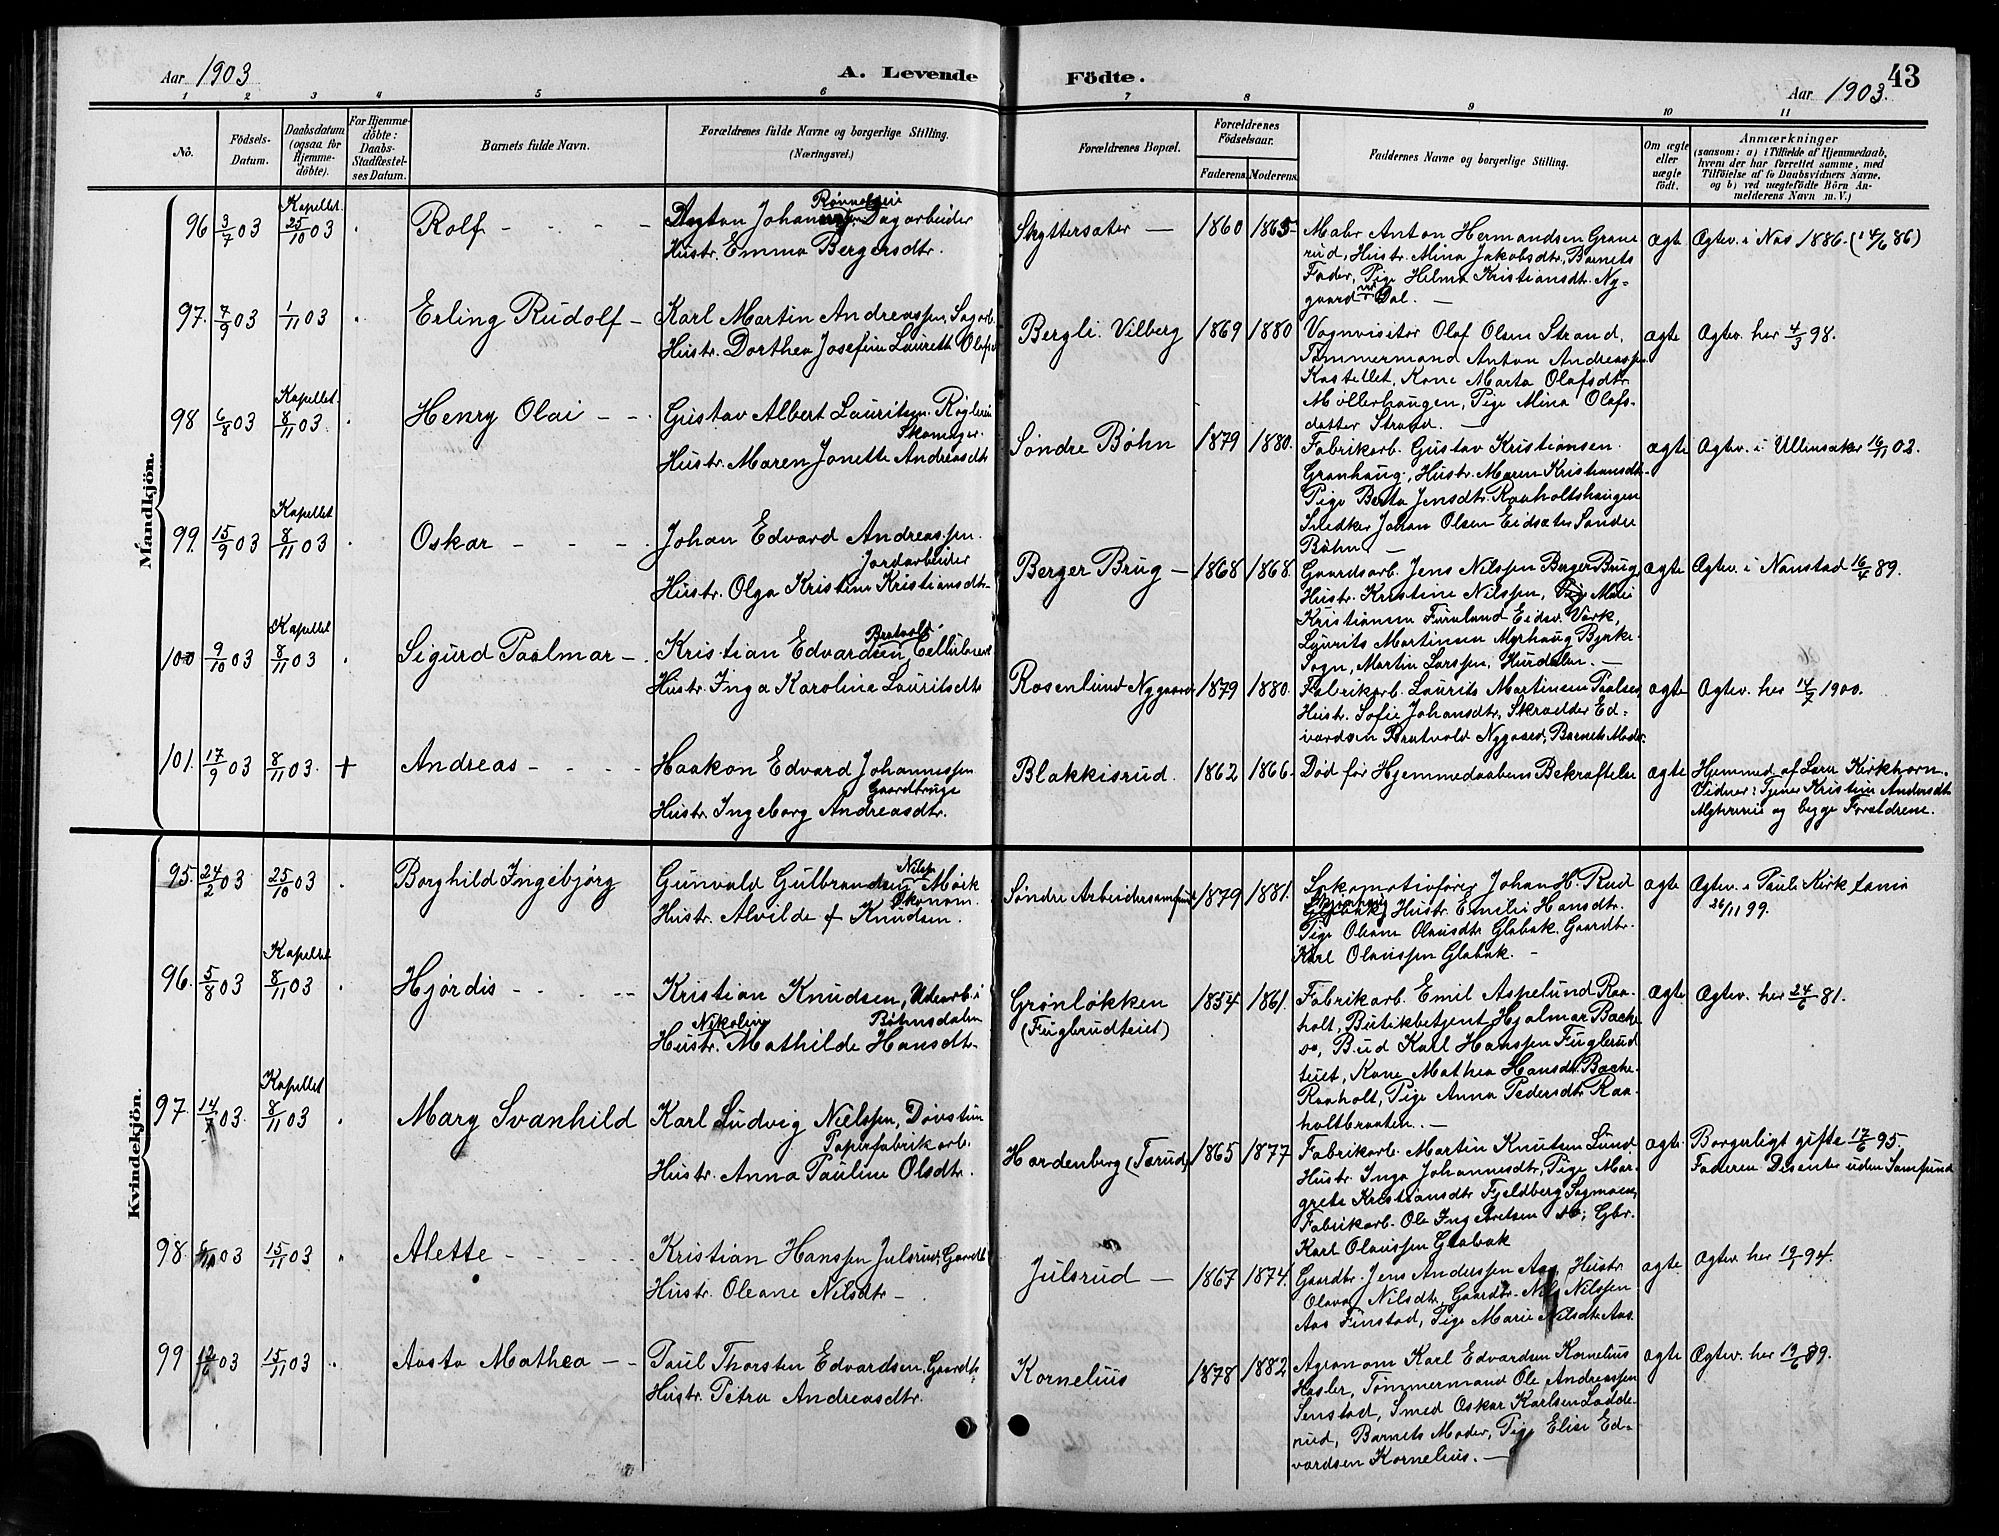 Aar 1903
A. Levende
Födte.
43
Aar 1903.
1 2 3 4 5 6 7 8 9 10 11
No.
Födsels-
Datum.
Daabsdatum
(ogsaa for
Hjemme-
döbte).
For Hjemme-
döbte:
Daabs-
Stadfæstel-
ses Datum.
Barnets fulde Navn.
Forældrenes fulde Navne og borgerlige Stilling.
(Næringsvei.)
Forældrenes Bopæl.
Forældrenes
Födselsaar.
Faderens. Moderens.
Faddernes Navne og borgerlige Stilling.
Om ægte
eller
uægte
födt.
Anmærkninger
(saasom: a) i Tilfælde af Hjemmedaab,
hvem der har forrettet samme, med
Tilföielse af to Daabsvidners Navne,
og b) ved uægtefödte Börn An-
melderens Navn m. V.)
Mandkjön.
96 3/7 03
Kapellet
25/10 03
Rolf
Anton Johansen Dagarbeider
Hustr. Emma Bergersdtr.
Skyttersæter
1860 1865
Maler Anton Hermandsen Grane
rud, Hustr. Mina Jakobsdtr, Barnets
Fader, Pige Helma Kristiansdt. Ny-
gaard Dal.
ægte
Ægtev. i Nes 1886. (14/6 86)
97. 7/9 03
1/11 03
Erling Rudolf
Karl Martin Andreassen, Sagarb.
Hustr. Dorthea Josefine Laurette Olafsd
Bergli. Vilberg
1869 1880
Vognvisitør Olaf Olsen Strand,
Tømmermand Anton Andreassen
Kastellet, Kone Marta Olafsdtr
Møllerhaugen, Pige Mina Olafs-
datter Strand.
ægte
Ægtev. her 4/3 98.
98 6/8 03
Kapellet.
8/11 03
Henry Olai
Gustav Albert Lauritsen
Skomager.
Hustr. Maren Jonette Andreasdtr
Søndre Bøhn
1879 1880.
Fabrikarb. Gustav Kristiansen
Granhaug, Hustr. Maren Kristiansdtr.
Pige Berta Jensdtr. Raaholtshaugen
Snedker Johan Olsen Eidsæter Søndre
Bøhn
ægte
Ægtev. i Ullensaker 16/11 02.
99. 15/9 03
Kapellet
8/11 03
Oskar
Johan Edvard Andreassen
Jordarbeider
Hustr. Olga Kristine Kristiansdtr
Berger Brug
1868 1868.
Gaardsarb. Jens Nilssen Berger Brug
Hustr. Kristine Nilssen, Pige Marie
Kristiansen Furulund Eidsv. Værk,
Laurits Martinsen Myrhaug Bjerke
Sogn, Martin Larssen, Hurdalen.
ægte
Ægtev. i Nanstad 16/4 89.
100 9/10 03
Kapellet
8/11 03
Sigurd Paalmar
Bratvold
Kristian Edvardsen, Cellulosearb
Hustr. Inga Karoline Lauritsdtr
Rosenlund Nygaard
1879 1880.
Fabrikarb. Laurits Martinsen Paalsen,
Hustr. Sofie Johansdtr, Skrædder Ed-
vardsen Bratvold Nygaard, Barnets Moder.
ægte
Ægtev. her 14/7 1900.
101. 17/9 03
8/11 03. +
Andreas
Haakon Edvard Johannessen
Gaardbruger
Hustr. Ingeborg Andreasdtr.
Blakkisrud.
1862 1866.
Død før Hjemmedaabens Bekræftelse
ægte
Hjemmed. af Lars Kirkhorn.
Vidner: Tjener Kristine Andersdtr
og begge Forældrene.
Kvindekjön.
95. 24/2 03
25/10 03
Borghild Ingebjørg
Nilsen
Gunvald Gulbrandsen Mørk
Økonom.
Hustr. Alvilde f. Knudsen.
Søndre Arbeidersamfund
1879 1881.
Lokomotivfører Johan H. Rud
Hustr. Emilie Hansdtr.
Pige Oleane Olausdtr Glabak, Gaardbr.
Karl Olaussen Glabak.
ægte
Ægtev. i Pauli Kirk Xania
26/11 99.
96. 5/8 03
Kapellet
8/11 03
Hjørdis
Kristian Knudsen, Udearb. i
Nikoline Bøhnsdalen
Hustr. Mathilde Hansdtr.
Grønløkken
(Fuglerudteiet)
1854 1861.
Fabrikarb. Emil Aspelund Raa-
holt, Butikbetjent Hjalmar Bache
do, Bud Karl Hanssen Fuglerud
teiet, Kone Mathea Hansdt. Bache
Raaholt, Pige Anna Pedersdtr Raa-
holtbraaten.
ægte
Ægtev. her 24/6 81.
97. 14/7 03.
Kapellet
8/11 03
Mary Svanhild
Karl Ludvig Nielssen, Døvstien
Papirfabrikarb.
Hustr. Anna Pauline Olsdtr.
Hardenberg (Tærud)
1865 1877
Fabrikarb. Martin Knutsen Lund
Hustr. Inga Johannesdtr, Pige Mar-
grete Kristiansdtr Fjeldberg Sagmoen,
Fabrikarb. Ole Ingebretsen do, Gbr.
Karl Olaussen Glabak
ægte
Borgerligt gifte 17/6 95.
Faderen Dissenter uden Samfund
98. 03
15/11 03
Alette
Kristian Hanssen Julsrud, Gaardb
Hustr. Oleane Nilsdtr
Julsrud
1867 1874.
Gaardbr. Jens Anderssen Aas, Hustr
Olava Nilsdtr, Gaardbr. Nils Nilssen
Aas Finstad, Pige Marie Nilsdtr Aas.
ægte
Ægtev. her 94.
99 12/6 03
15/11 03
Aasta Mathea
Paul Thorsten Edvardsen, Gaardbr
Hustr. Petra Andreasdtr.
Kornelius
1878 1882
Agronom Karl Edvardsen Kornelius
Hasler, Tømmermand Ole Andreassen
Senstad, Smed Oskar Karlsen Ladde-
rud, Barnets Moder, Pige Elise Ed-
vardsen Kornelius.
ægte
Ægtev. her 19/6 99.